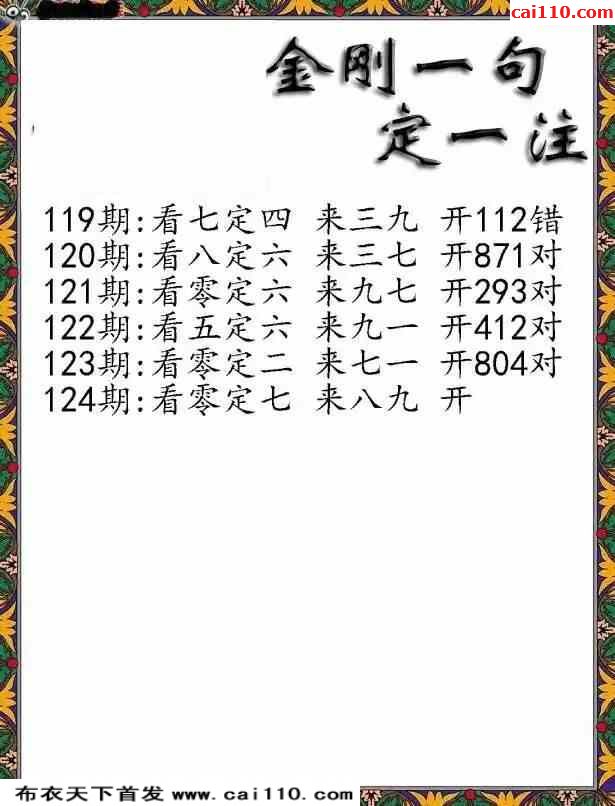 cai110.com
金刚一句
定一注
119期:看七定四 来三九 开112错
120期:看八定六 来三七 开871对
121期:看零定六 来九七 开293对
122期:看五定六 来九一 开412对
123期:看零定二 来七一 开804对
124期:看零定七 来八九 开
布衣天下首发 www.cai110.com